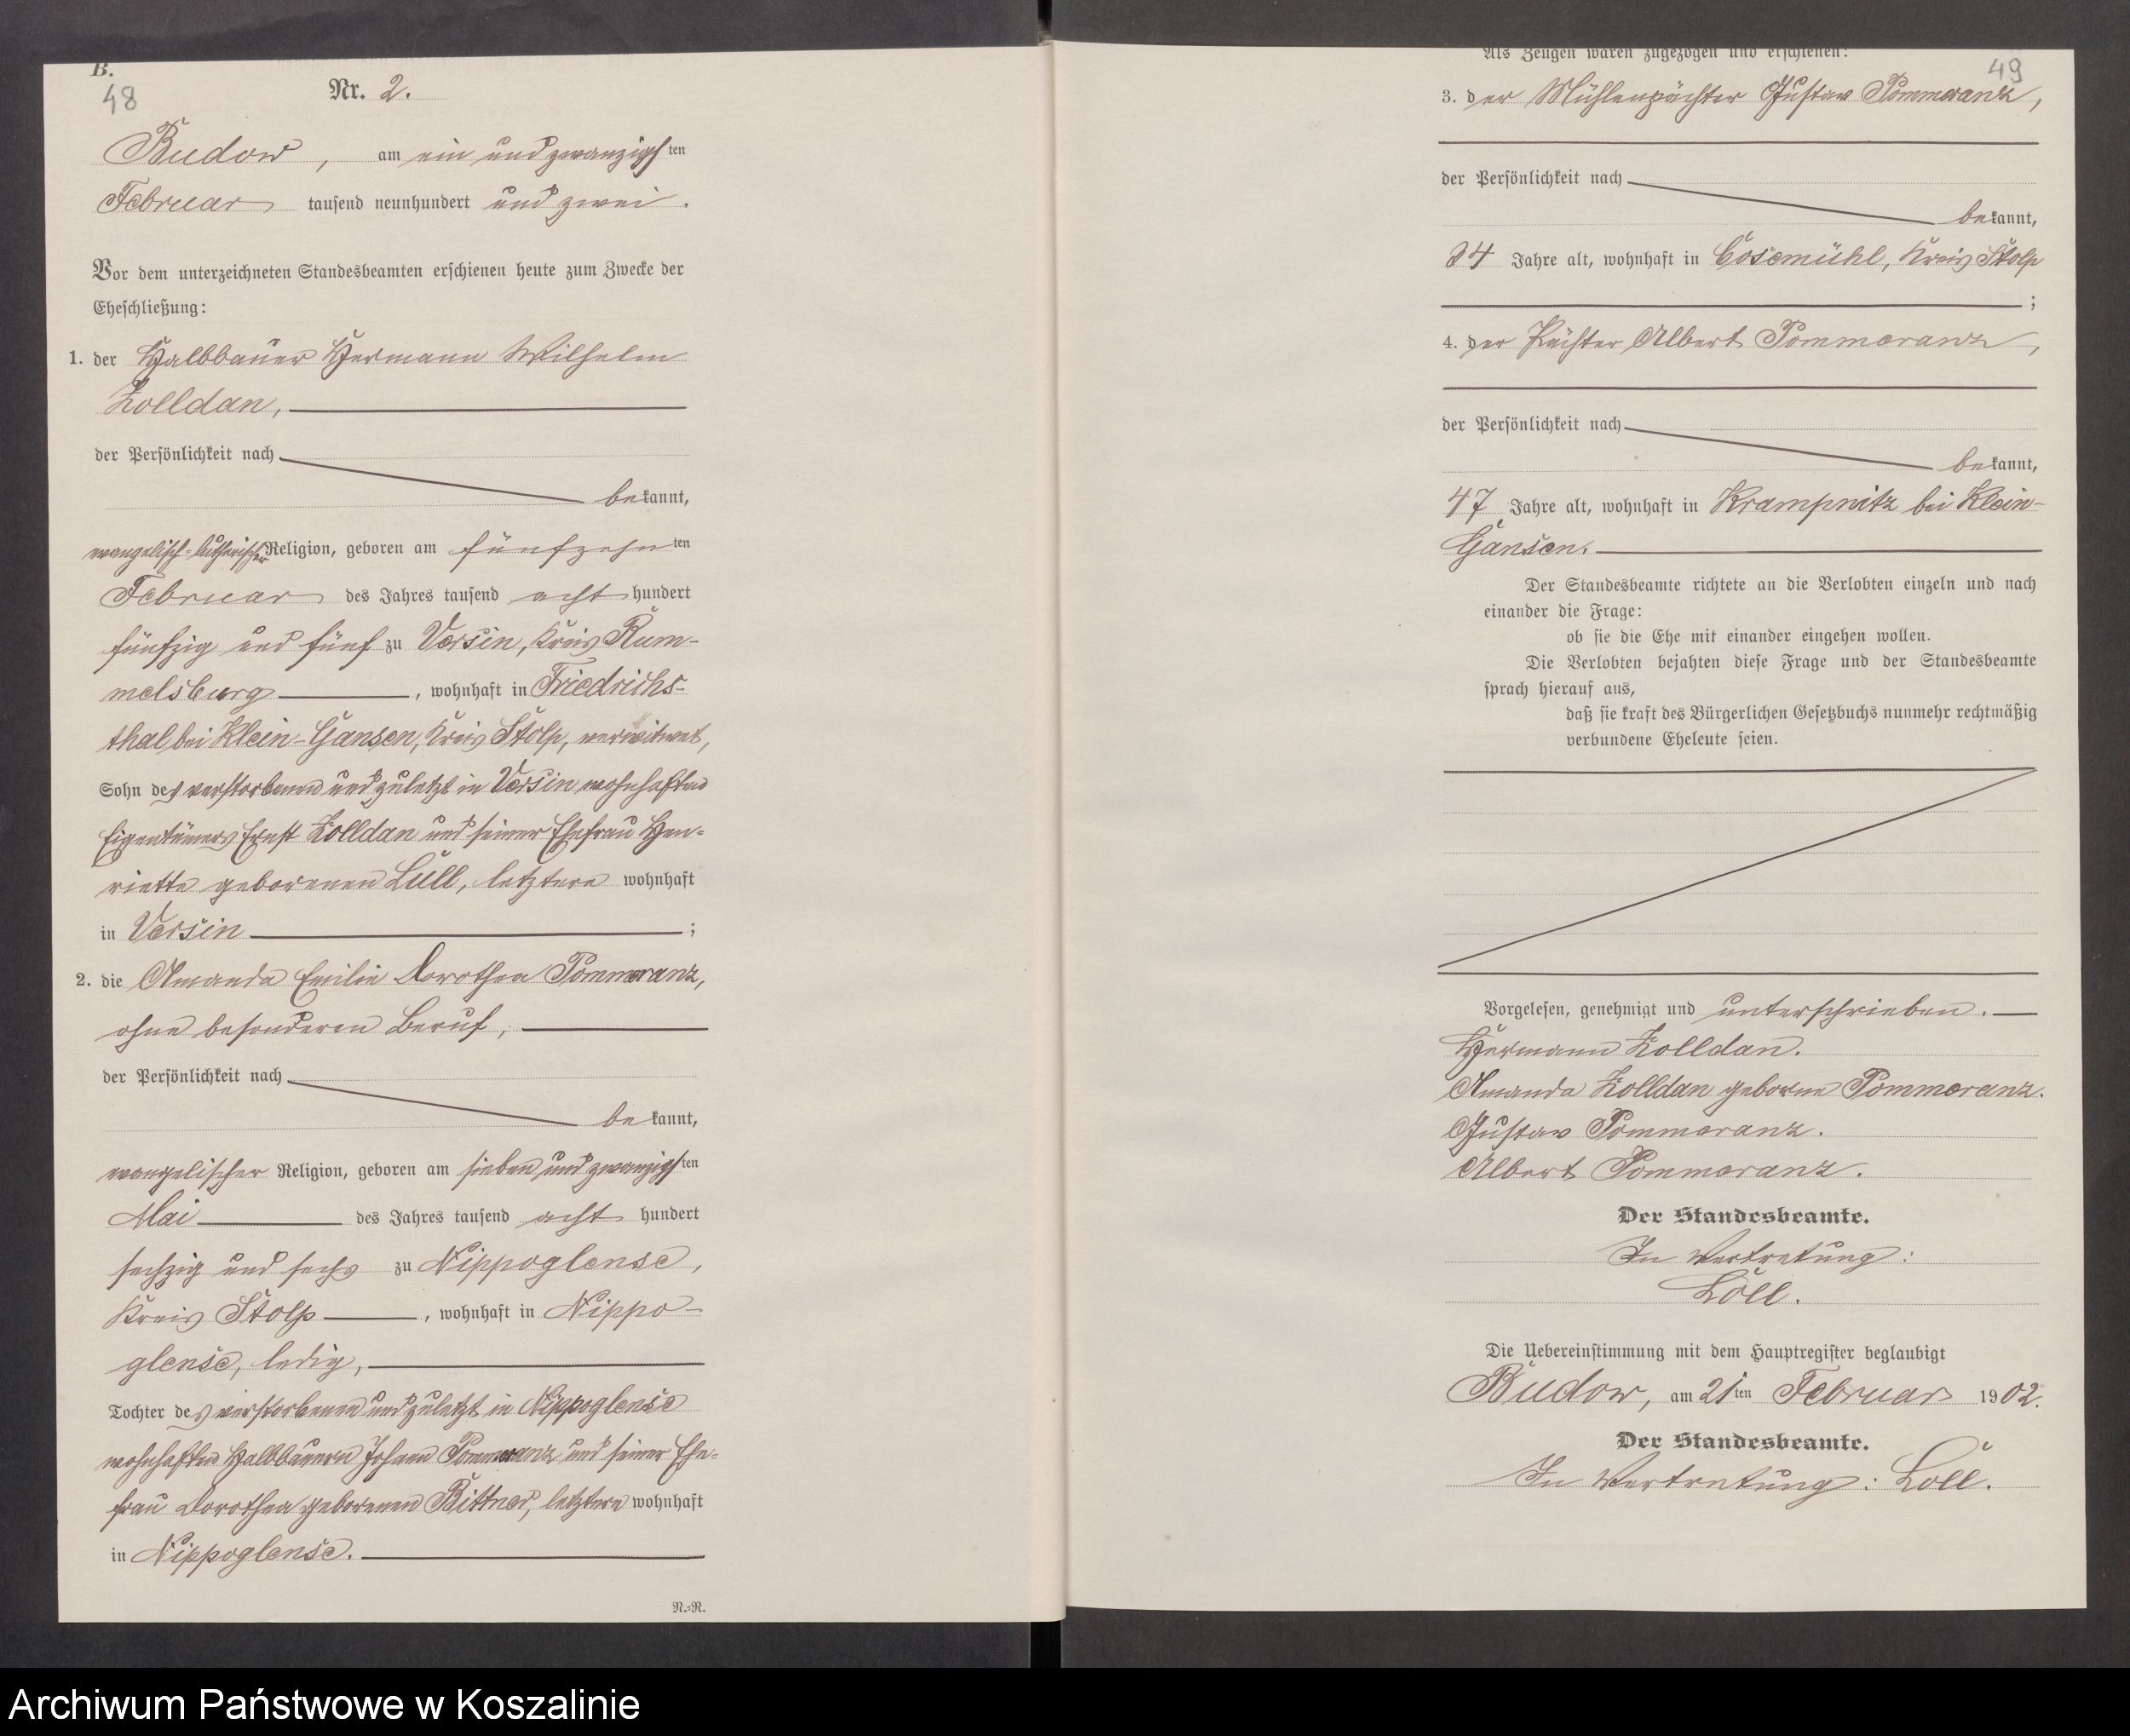 B.
48
Nr. 2.
Budow, am ein und zwanzigsten
Februar tausend neunhundert und zwei.
Vor dem unterzeichneten Standesbeamten erschienen heute zum Zwecke der
Eheschließung:
1. der Halbbauer Hermann Wilhelm
Zolldan,
der Persönlichkeit nach
bekannt,
evangelisch-lutherischer Religion, geboren am fünfzehnten
Februar des Jahres tausend achthundert
fünfzig und fünf zu Versin, Kreis Rum-
melsburg, wohnhaft in Friedrichs-
thal bei Klein-Gansen, Kreis Stolp, verwitwet,
Sohn des verstorbenen und zuletzt in Versin wohnhaften
Eigentümers Ernst Zolldan und seiner Ehefrau Hen-
riette geborenen Lüll, letztere wohnhaft
in Versin;
2. die Amanda Emilie Dorothea Pommeranz,
ohne besonderen Beruf,
der Persönlichkeit nach
bekannt,
evangelischer Religion, geboren am sieben und zwanzigsten
Mai des Jahres tausend achthundert
sechzig und sechs zu Nippoglense,
Kreis Stolp, wohnhaft in Nippo-
glense, ledig,
Tochter des verstorbenen und zuletzt in Nippoglense
wohnhaften Halbbauern Johann Pommeranz und seiner Ehe-
frau Dorothea geborenen Bittner, letztere wohnhaft
in Nippoglense.
N.-R.
Als Zeugen waren zugezogen und erschienen:
49
3. der Mühlenpächter Gustav Pommeranz,
der Persönlichkeit nach
bekannt,
34 Jahre alt, wohnhaft in Cosemühl, Kreis Stolp
;
4. der Pächter Albert Pommeranz,
der Persönlichkeit nach
bekannt,
47 Jahre alt, wohnhaft in Krampnitz bei Klein-
Gansen.
Der Standesbeamte richtete an die Verlobten einzeln und nach
einander die Frage:
ob sie die Ehe mit einander eingehen wollen.
Die Verlobten bejahten diese Frage und der Standesbeamte
sprach hierauf aus,
daß sie kraft des Bürgerlichen Gesetzbuchs nunmehr rechtmäßig
verbundene Eheleute seien.
Vorgelesen, genehmigt und unterschrieben.
Hermann Zolldan.
Amanda Zolldan geborne Pommeranz.
Gustav Pommeranz.
Albert Pommeranz.
Der Standesbeamte.
In Vertretung:
Löll.
Die Uebereinstimmung mit dem Hauptregister beglaubigt
Budow, am 21ten Februar 1902.
Der Standesbeamte.
In Vertretung: Löll.
Archiwum Państwowe w Koszalinie